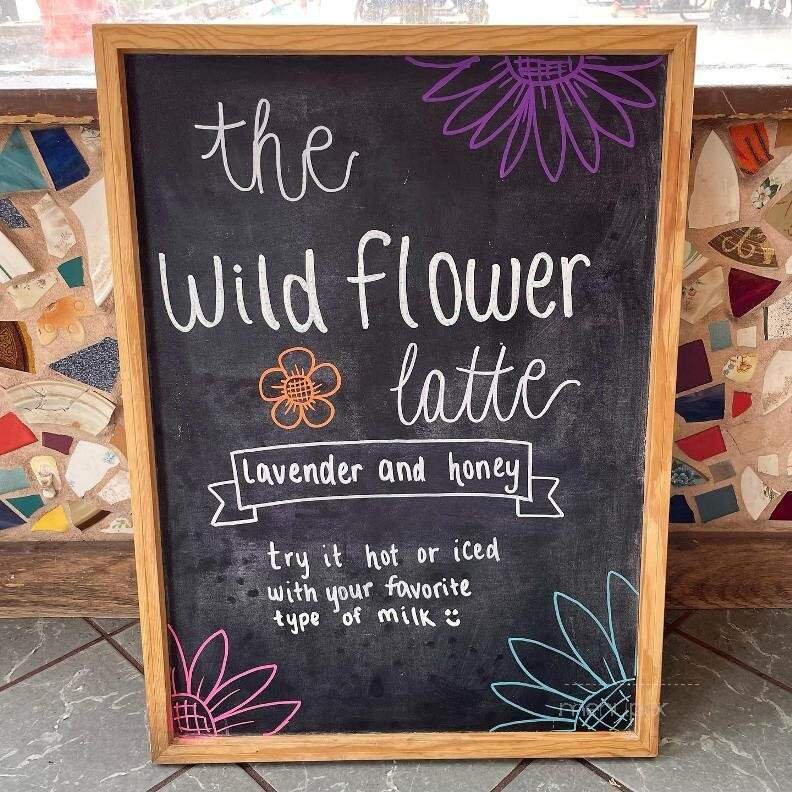 the
Wild flower
latte
lavender and honey
try it hot or iced
with your favorite
type of milk
menupix